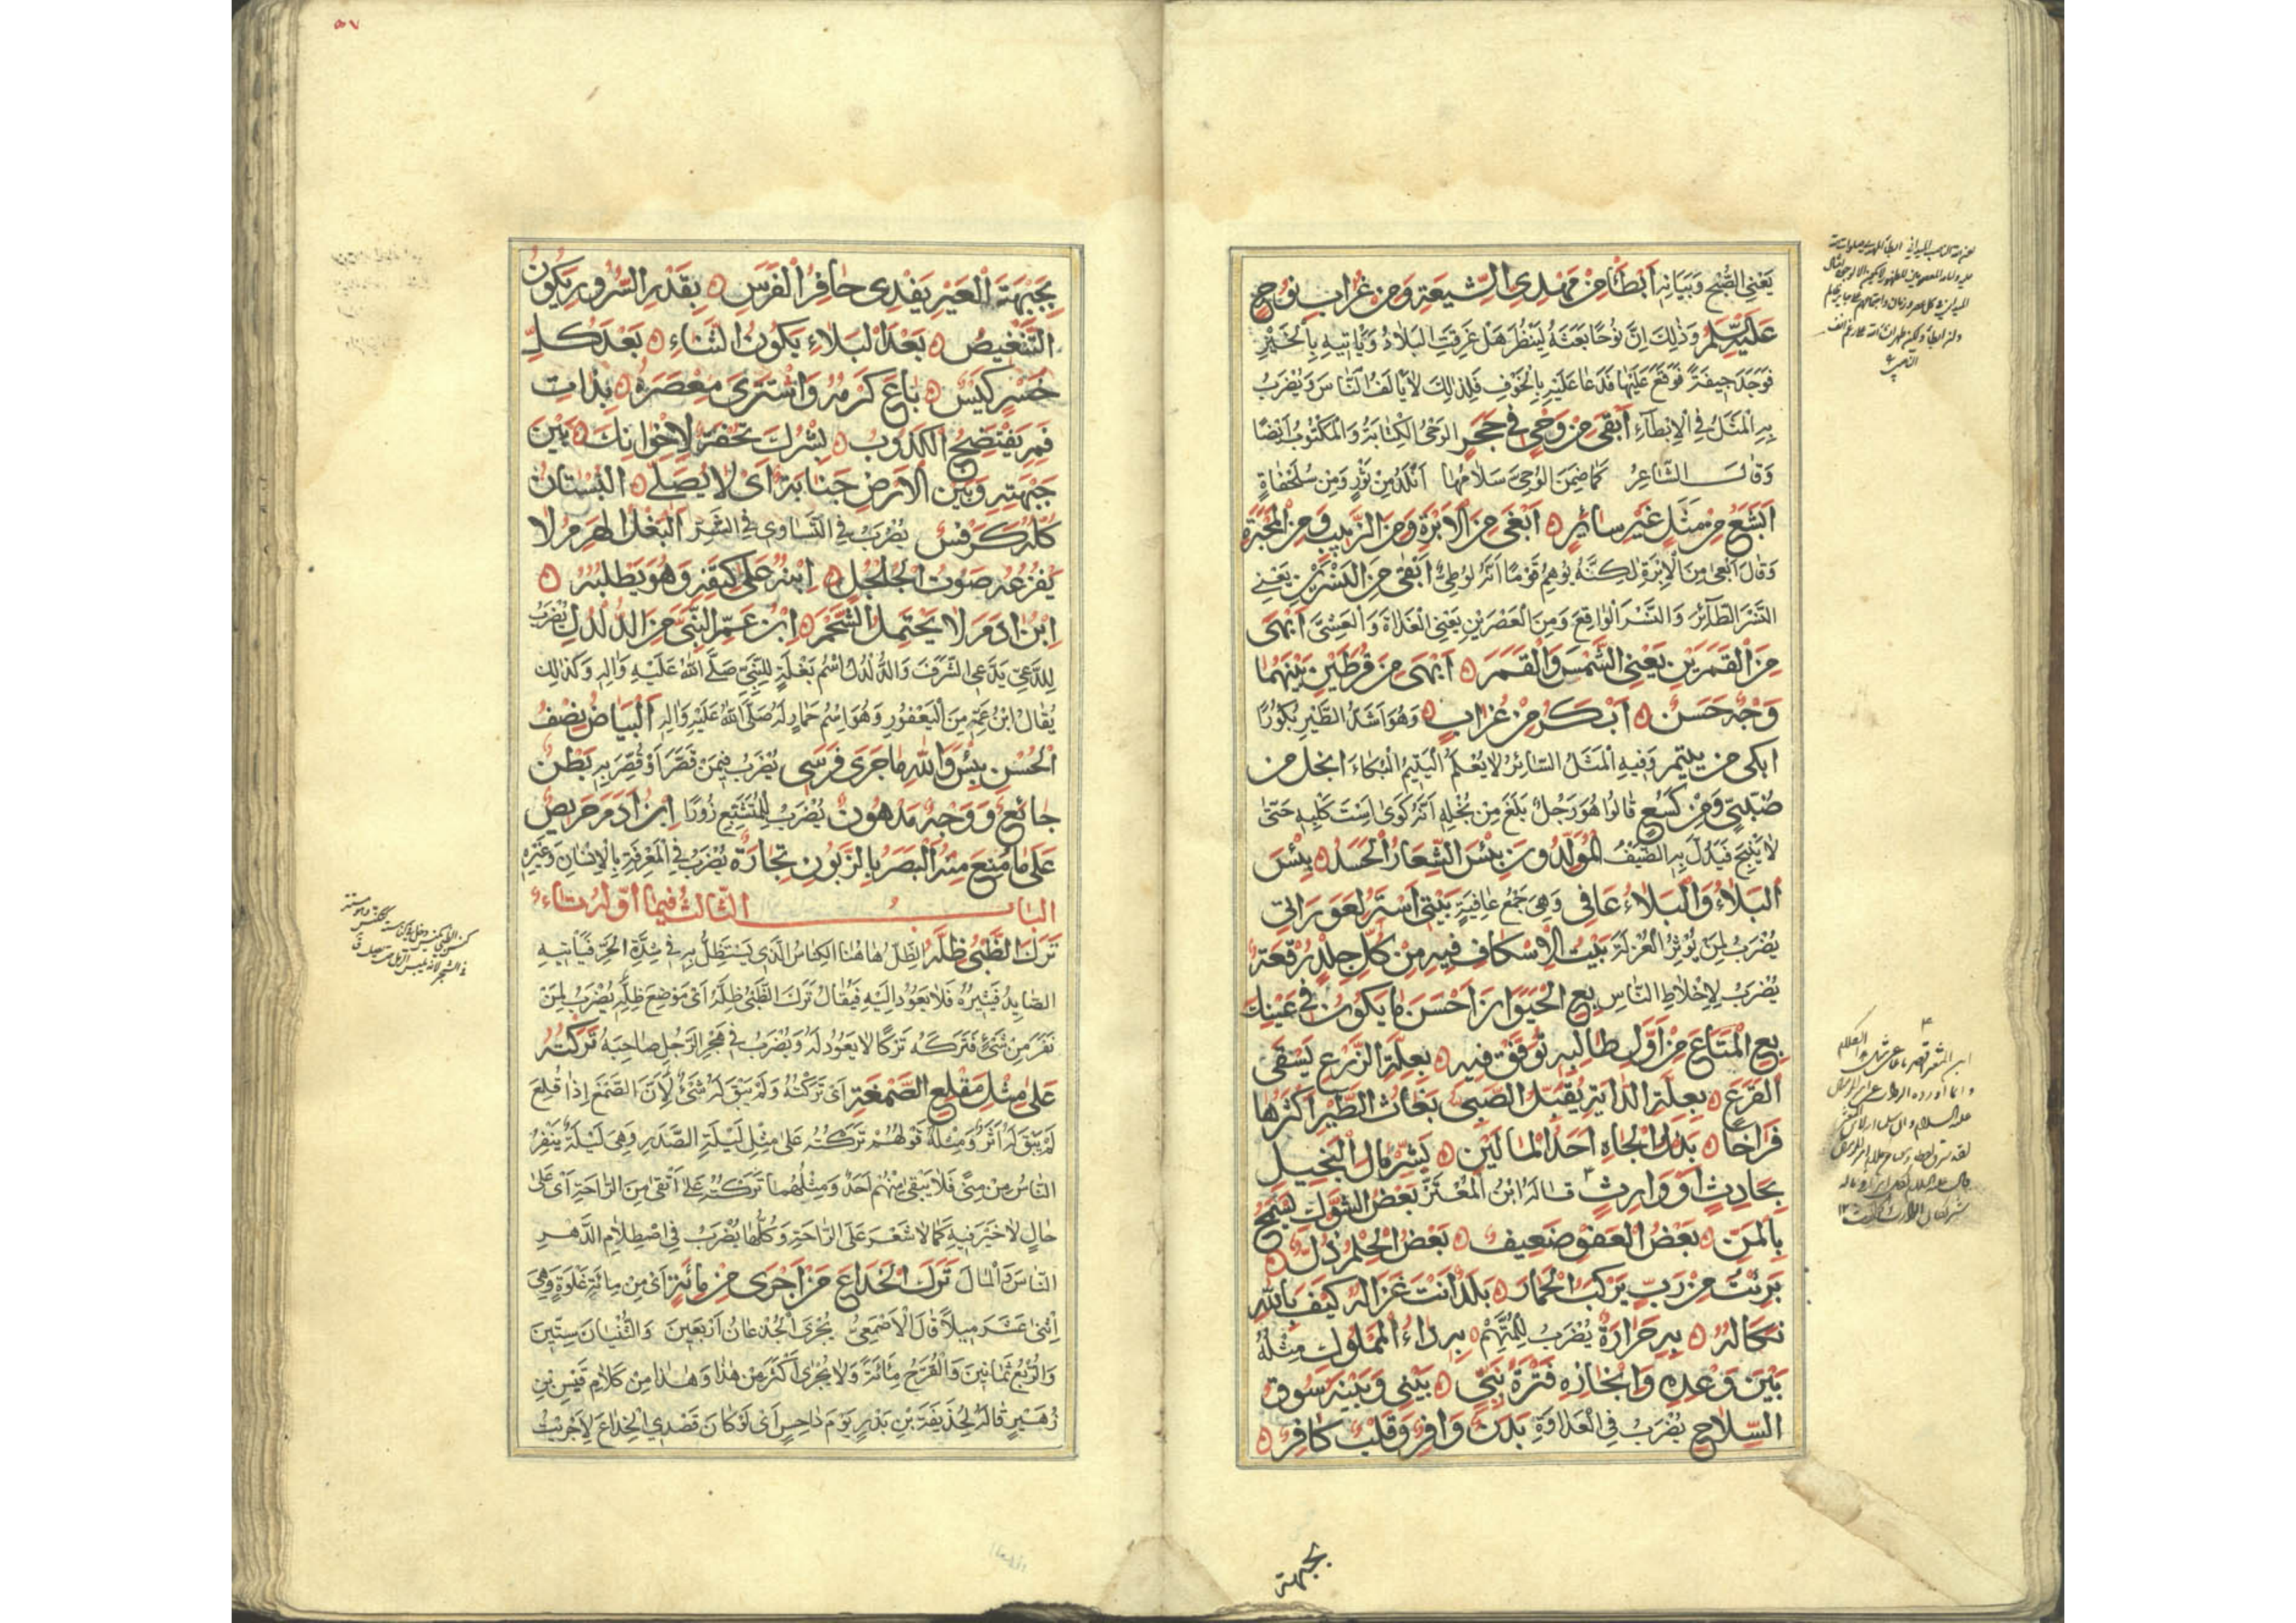 يَعْنِي الصُّبْحَ وَبَيَانِهِ أَبْطَأُ مِنْ مَهْدِيِّ الشِّيعَةِ وَمِنْ غُرَابِ نُوحٍ
عَلَيْهِ السَّلَامُ وَذٰلِكَ اِنَّ نُوحًا بَعَثَهُ لِيَنْظُرَ هَلْ غَرِقَتِ الْبَلَادُ وَيَاْتِيهِ بِالْخَبَرِ
فَوَجَدَ جِيفَةً فَوَقَعَ عَلَيْهَا فَدَعَا عَلَيْهِ بِالْخَوْفِ فَلِذٰلِكَ لَا يَاْلَفُ النَّاسَ وَيُضْرَبُ
بِهِ الْمَثَلُ فِي الْاِبْطَاءِ أَبْقَى مِنْ وَحْيٍ فِي حَجَرٍ الوَحْيُ الْكِتَابَةُ وَالْمَكْتُوبُ اَيْضًا
وَقَالَ الشَّاعِرُ كَمَا ضَمِنَ الْوُحِيَّ سَلَامُهَا اَبْلَدُ مِنْ ثَوْرٍ وَمِنْ سُلَحْفَاةٍ
اَبْشَعُ مِنْ مَثَلٍ غَيْرِ سَائِرٍ اَبْغَى مِنَ الْاِبْرَةِ وَمِنَ الزَّبِيبِ وَمِنَ الْمِحْبَرَةِ
وَقَالَ اَبْغَى مِنَ الْاِبْرَةِ لٰكِنَّهُ يُوهِمُ قَوْمًا اَنَّهُ لُوطِيٌّ اَبْقَى مِنَ النَّسْرَيْنِ يَعْنِي
النَّسْرَ الطَّائِرَ وَالنَّسْرَ الْوَاقِعَ وَمِنَ الْعَصْرَيْنِ يَعْنِي الْغَدَاةَ وَالْعَشِيَّ اَبْهَى
مِنَ الْقَمَرَيْنِ يَعْنِي الشَّمْسَ وَالْقَمَرَ اَبْهَى مِنْ قُرْطَيْنِ بَيْنَهُمَا
وَجْهٌ حَسَنٌ اَبْكَرُ مِنْ غُرَابٍ وَهُوَ اَشَدُّ الطَّيْرِ بُكُورًا
ابكى من يتيم وَفِيهِ الْمَثَلُ السَّائِرُ لَا يُعْلَمُ الْيَتِيمُ الْبُكَاءَ ابخل من
صَبِيٍّ وَمِنْ كُسَعٍ قَالُوا هُوَ رَجُلٌ بَلَغَ مِنْ بُخْلِهِ اَنَّهُ كَوَى اِسْتَ كَلْبِهِ حَتّٰى
لَا يَنْبَحَ فَيَدُلَّ بِهِ الضَّيْفُ المُوَلَّدُونَ بِئْسَ الشِّعَارُ الْحَسَدُ بِئْسَ
الْبَلَاءُ وَالْبَلَاءُ عَافِي وَهِيَ جَمْعُ عَافِيَةٍ بَيْتِي اَسْتَرُ لِعَوَرَاتِي
يُضْرَبُ لِمَنْ يُؤْثِرُ الْعُزْلَةَ بَيْتُ الْاِسْكَافِ فِيهِ مِنْ كُلِّ جِلْدٍ رُقْعَةٌ
يُضْرَبُ لِاِخْلَاطِ النَّاسِ بِعِ الْحَيَوَانَ اَحْسَنَ مَا يَكُونُ فِي عَيْنِكَ
بِعِ الْمَتَاعَ مِنْ اَوَّلِ طَالِبِهِ تُوَفَّقْ فِيهِ بِعِلَّةِ الزَّرْعِ يُسْقَى
الْقَرْعُ بِعِلَّةِ الدَّايَةِ يُقَبَّلُ الصَّبِيُّ بُغَاثُ الطَّيْرِ اَكْثَرُهَا
فِرَاخًا بَذْلُ الْجَاهِ اَحَدُ الْمَالَيْنِ بَشِّرْ مَالَ الْبَخِيلِ
بِحَادِثٍ اَوْ وَارِثٍ قَالَهُ ابْنُ الْمُعْتَزِّ بَعْضُ الشَّوْكِ يَسْمَحُ
بِالْمَنِّ بَعْضُ الْعَفْوِ ضَعِيفٌ بَعْضُ الْحِلْمِ ذُلٌّ
بَرِئْتُ مِنْ رَبٍّ يَرْكَبُ الْحِمَارَ بَلَدٌ اَنْتَ غَزَالُهُ كَيْفَ بِاللّٰهِ
نَكَالُهُ بِهِ حَرَارَةٌ يُضْرَبُ لِلْمُتَّهَمِ بِهِ دَاءُ الْمُلُوكِ مِثْلُهُ
بَيْنَ وَعْدِهِ وَاِنْجَازِهِ فَتْرَةُ نَبِيٍّ بَيْنِي وَبَيْنَهُ سُوقُ
السِّلَاحِ يُضْرَبُ فِي الْعَدَاوَةِ بَدَنٌ وَافِرٌ وَقَلْبٌ كَافِرٌ
بجبهة
٥٧
بِجَبْهَةِ الْعَيْرِ يَفْدِي حَافِرُ الْفَرَسِ بِقَدْرِ السُّرُورِ يَكُونُ
التَّنْغِيصُ بَعْدَ الْبَلَاءِ يَكُونُ الثَّنَاءُ بَعْدَ كُلِّ
خُسْرٍ كَيْسٌ بَاعَ كَرْمَهُ وَاشْتَرَى مِعْصَرَةً بِذَاتِ
فَمِهِ يَفْتَضِحُ الْكَذُوبُ بِشْرُكَ تُحْفَةٌ لِاِخْوَانِكَ بَيْنَ
جَبْهَتِهِ وَبَيْنَ الْاَرْضِ جِنَايَةٌ اَيْ لَا يُصَلِّي الْبُسْتَانُ
كُلُّهُ كَرَفْسٌ يُضْرَبُ فِي التَّسَاوِي فِي الشَّرِّ اَلْبَغْلُ الْهَرِمُ لَا
يُفْزِعُهُ صَوْتُ الْجُلْجُلِ اِبْنُهُ عَلَى كَتِفِهِ وَهُوَ يَطْلُبُهُ
اِبْنُ ادَمَ لَا يَحْتَمِلُ الشَّحْمَ اِبْنُ عَمِّ النَّبِيِّ مِنَ الدُّلْدُلِ يُضْرَبُ
لِلدَّعِيِّ يَدَّعِي الشَّرَفَ وَالدُّلْدُلُ اسْمُ بَغْلَةٍ لِلنَّبِيِّ صَلَّى اللهُ عَلَيْهِ وَاٰلِهِ وَكَذٰلِكَ
يُقَالُ ابْنُ عَمِّهِ مِنَ الْيَعْفُورِ وَهُوَ اسْمُ حِمَارٍ لَهُ صَلَّى اللهُ عَلَيْهِ وَاٰلِهِ اَلْبَيَاضُ نِصْفُ
الْحُسْنِ بِئْسَ وَاللّٰهِ مَا جَرَى فَرَسِي يُضْرَبُ فِيمَنْ قَصَّرَ اَوْ قُصِّرَ بِهِ بَطْنٌ
جَائِعٌ وَوَجْهٌ مَدْهُونٌ يُضْرَبُ لِلْمُتَشَبِّعِ زُورًا اِبْنُ اٰدَمَ حَرِيصٌ
عَلٰى مَا مُنِعَ مِنْهُ الْبَصَرُ بِالزَّبُونِ تِجَارَةٌ يُضْرَبُ فِي الْمَعْرِفَةِ بِالْاِنْسَانِ وَغَيْرِهِ
البَابُ الثَّالِثُ فِيمَا اَوَّلُهُ تَاءٌ
تَرَكَ الظَّبْيُ ظِلَّهُ اَلظِّلُّ هَاهُنَا الْكِنَاسُ الَّذِي يَسْتَظِلُّ بِهِ فِي شِدَّةِ الْحَرِّ فَيَاْتِيهِ
الصَّايِدُ فَيُثِيرُهُ فَلَا يَعُودُ اِلَيْهِ فَيُقَالُ تَرَكَ الظَّبْيُ ظِلَّهُ اَيْ مَوْضِعَ ظِلِّهِ يُضْرَبُ لِمَنْ
نَفَرَ مِنْ شَيْءٍ فَتَرَكَهُ تَرْكًا لَا يَعُودُ لَهُ وَيُضْرَبُ فِي هَجْرِ الرَّجُلِ صَاحِبَهُ تَرَكْتُهُ
عَلٰى مِثْلِ مَقْلِعِ الصَّمْغَةِ اَيْ تَرَكْتُهُ وَلَمْ يَبْقَ لَهُ شَيْءٌ لِاَنَّ الصَّمْغَ اِذَا قُلِعَ
لَمْ يَبْقَ لَهُ اَثَرٌ وَمِثْلُهُ قَوْلُهُمْ تَرَكْتُهُ عَلٰى مِثْلِ لَيْلَةِ الصَّدَرِ وَهِيَ لَيْلَةُ يَنْفِرُ
النَّاسُ مِنْ مِنًى فَلَا يَبْقَى مِنْهُمْ اَحَدٌ وَمِثْلُهُمَا تَرَكْتُهُ عَلٰى اَنْقَى مِنَ الرَّاحَةِ اَيْ عَلٰى
حَالٍ لَا خَيْرَ فِيهِ كَمَا لَا شَعْرَ عَلَى الرَّاحَةِ وَكُلُّهَا يُضْرَبُ فِي اصْطِلَامِ الدَّهْرِ
النَّاسَ وَالْمَالَ تَرَكَ الْخِدَاعَ مَنْ اَجْرَى مِنْ مِائَةٍ اَيْ مِنْ مِائَةِ غَلْوَةٍ وَهِيَ
اِثْنَى عَشَرَ مِيلًا قَالَ الْاَصْمَعِيُّ يُجْرَى الْجُذْعَانُ اَرْبَعِينَ وَالثُّنْيَانُ سِتِّينَ
وَالرُّبَعُ ثَمَانِينَ وَالْقُرَّحُ مِائَةً وَلَا يُجْرٰى اَكْثَرُ مِنْ هٰذَا وَهٰذَا مِنْ كَلَامِ قَيْسِ بْنِ
زُهَيْرٍ قَالَهُ لِحُذَيْفَةَ بْنِ بَدْرٍ يَوْمَ دَاحِسٍ اَيْ لَوْ كَانَ قَصْدِي الْخِدَاعَ لَاَجْرَيْتُ